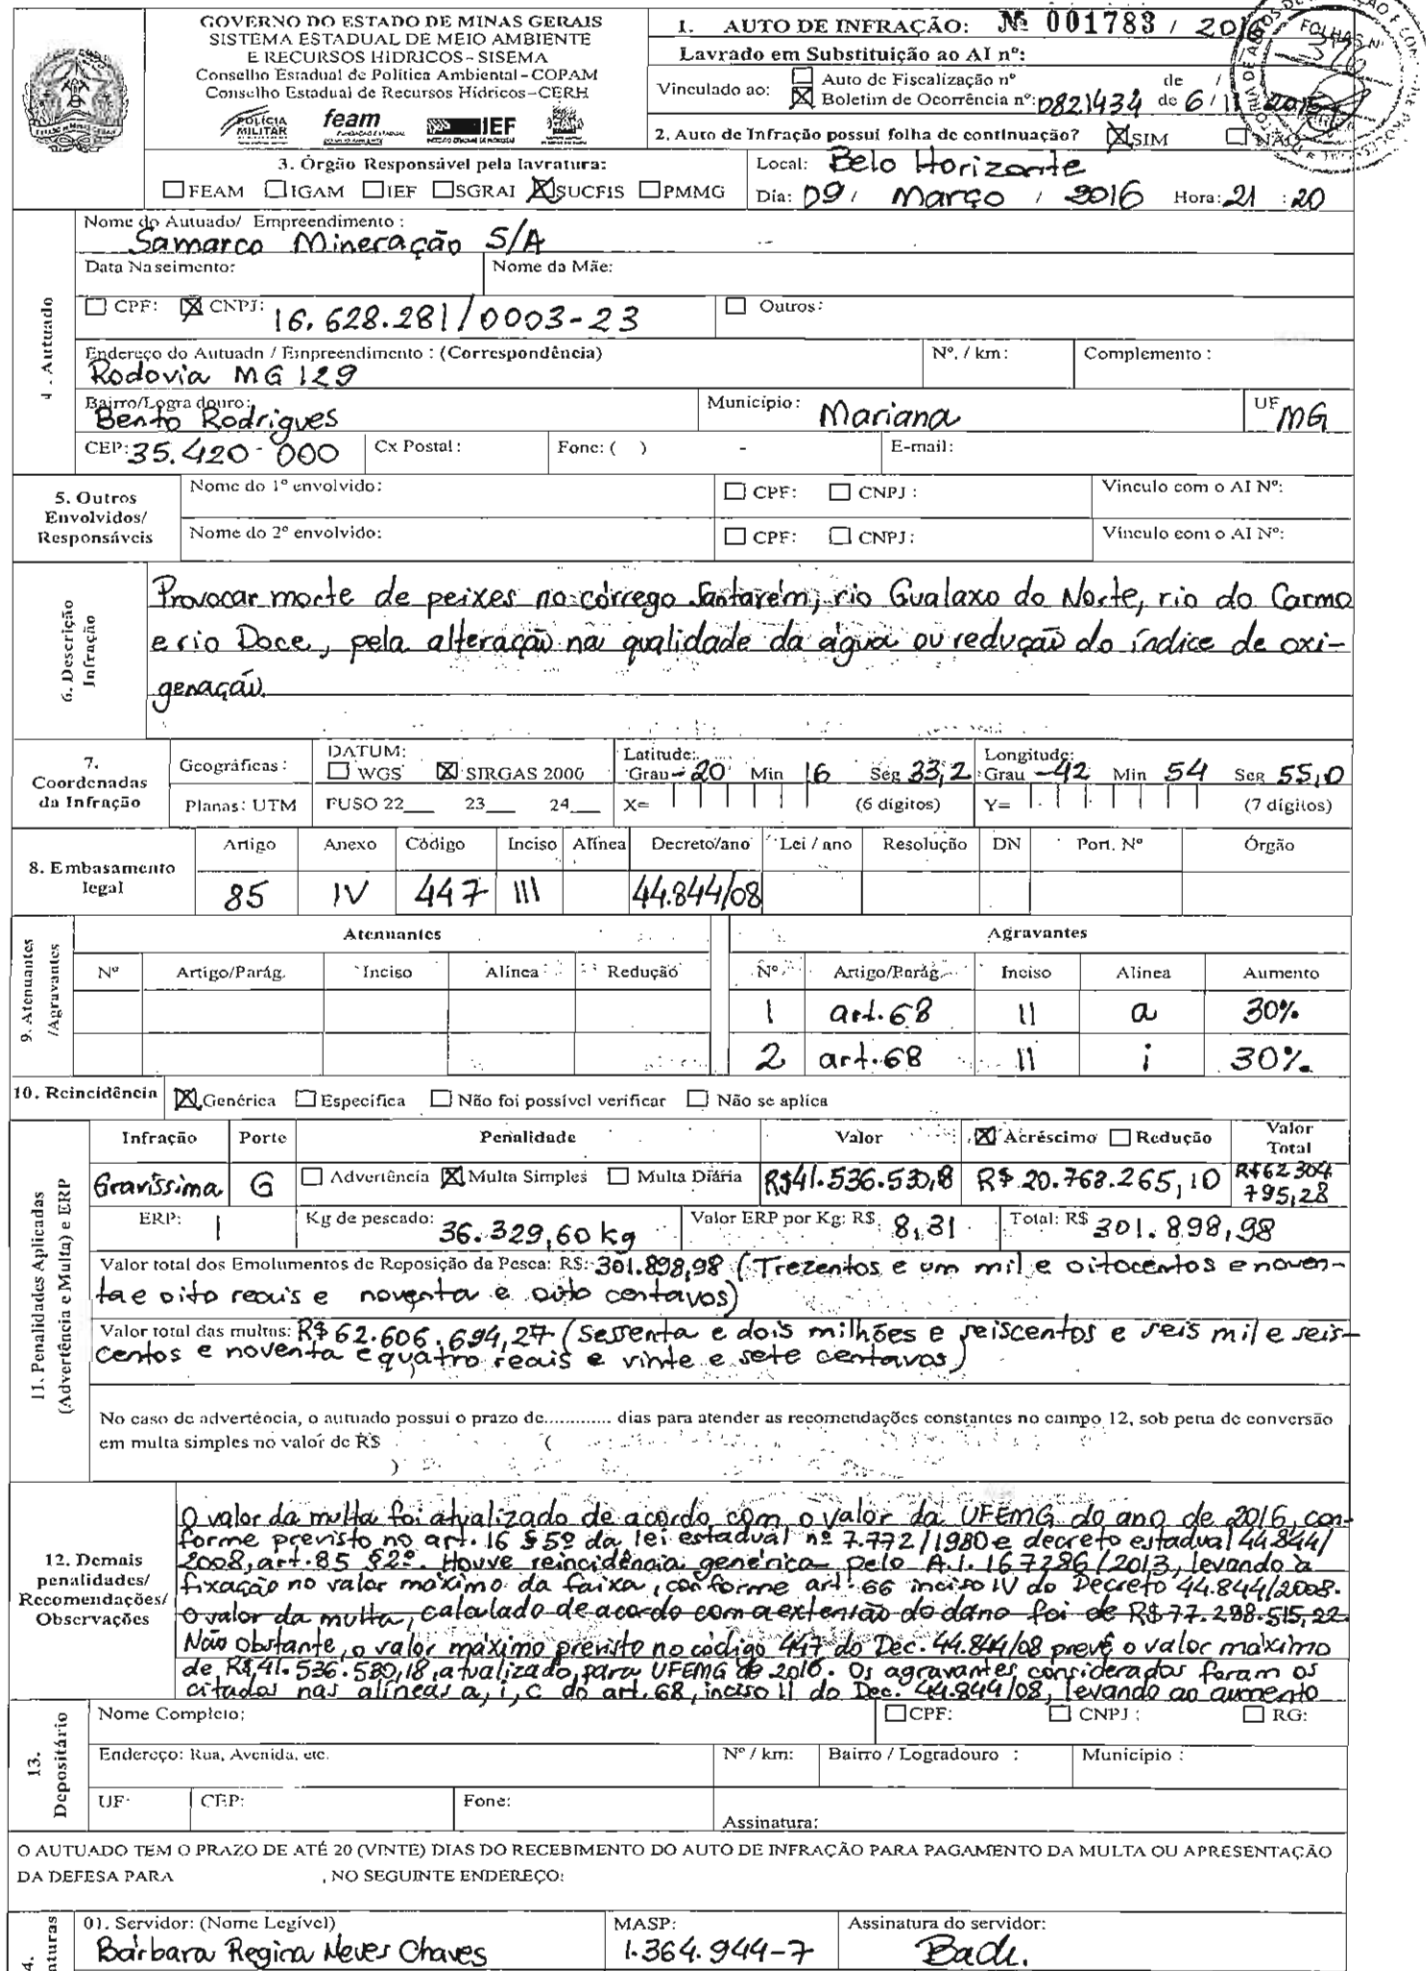 GOVERNO DO ESTADO DE MINAS GERAIS
SISTEMA ESTADUAL DE MEIO AMBIENTE
E RECURSOS HÍDRICOS - SISEMA
Conselho Estadual de Política Ambiental - COPAM
Conselho Estadual de Recursos Hídricos - CERH
POLÍCIA MILITAR feam IEF
1. AUTO DE INFRAÇÃO: Nº 001783 / 2016
Lavrado em Substituição ao AI nº:
Vinculado ao: ☐ Auto de Fiscalização nº de /
☒ Boletim de Ocorrência nº: 0821434 de 6/11/2015
2. Auto de Infração possui folha de continuação? ☒ SIM ☐ NÃO
FOLHAS Nº
3. Órgão Responsável pela lavratura:
☐ FEAM ☐ IGAM ☐ IEF ☐ SGRAI ☒ SUCFIS ☐ PMMG
Local: Belo Horizonte
Dia: 09 / Março / 2016 Hora: 21 : 20
4. Autuado
Nome do Autuado/ Empreendimento :
Samarco Mineração S/A
Data Nascimento: Nome da Mãe:
☐ CPF: ☒ CNPJ: 16.628.281/0003-23 ☐ Outros:
Endereço do Autuado / Empreendimento : (Correspondência) Nº. / km: Complemento :
Rodovia MG 129
Bairro/Logradouro: Bento Rodrigues Município: Mariana UF MG
CEP: 35.420-000 Cx Postal: Fone: ( ) - E-mail:
5. Outros Envolvidos/ Responsáveis
Nome do 1º envolvido: ☐ CPF: ☐ CNPJ : Vínculo com o AI Nº:
Nome do 2º envolvido: ☐ CPF: ☐ CNPJ: Vínculo com o AI Nº:
6. Descrição Infração
Provocar morte de peixes no córrego Santarém, rio Gualaxo do Norte, rio do Carmo
e rio Doce, pela alteração na qualidade da água ou redução do índice de oxi-
genação.
7. Coordenadas da Infração
Geográficas: DATUM: ☐ WGS ☒ SIRGAS 2000 Latitude: Grau -20 Min 16 Seg 33,2 Longitude: Grau -42 Min 54 Seg 55,0
Planas: UTM FUSO 22 23 24 X= (6 dígitos) Y= (7 dígitos)
8. Embasamento legal
Artigo Anexo Código Inciso Alínea Decreto/ano Lei / ano Resolução DN Port. Nº Órgão
85 IV 447 III 44.844/08
9. Atenuantes /Agravantes
Atenuantes Agravantes
Nº Artigo/Parág. Inciso Alínea Redução Nº Artigo/Parág. Inciso Alínea Aumento
1 art.68 II a 30%
2 art.68 II i 30%
10. Reincidência ☒ Genérica ☐ Específica ☐ Não foi possível verificar ☐ Não se aplica
11. Penalidades Aplicadas (Advertência e Multa) e ERP
Infração Porte Penalidade Valor ☒ Acréscimo ☐ Redução Valor Total
Gravíssima G ☐ Advertência ☒ Multa Simples ☐ Multa Diária R$41.536.530,18 R$ 20.768.265,10 R$62.304.795,28
ERP: 1 Kg de pescado: 36.329,60 kg Valor ERP por Kg: R$ 8,31 Total: R$ 301.898,98
Valor total dos Emolumentos de Reposição da Pesca: R$: 301.898,98 (Trezentos e um mil e oitocentos e noven-
ta e oito reais e noventa e oito centavos)
Valor total das multas: R$ 62.606.694,27 (Sessenta e dois milhões e seiscentos e seis mil e seis-
centos e noventa e quatro reais e vinte e sete centavos)
No caso de advertência, o autuado possui o prazo de............ dias para atender as recomendações constantes no campo 12, sob pena de conversão
em multa simples no valor de R$ (
)
12. Demais penalidades/ Recomendações/ Observações
O valor da multa foi atualizado de acordo com o valor da UFEMG do ano de 2016, con-
forme previsto no art. 16 §5º da lei estadual nº 7.772/1980 e decreto estadual 44.844/
2008, art. 85 §2º. Houve reincidência genérica pelo A.I. 167286/2013, levando à
fixação no valor máximo da faixa, conforme art. 66 inciso IV do Decreto 44.844/2008.
O valor da multa, calculado de acordo com a extensão do dano foi de R$ 77.298.515,22.
Não obstante, o valor máximo previsto no código 447 do Dec. 44.844/08 prevê o valor máximo
de R$41.536.530,18, atualizado para UFEMG de 2016. Os agravantes considerados foram os
citados nas alíneas a, i, c do art. 68, inciso II do Dec. 44.844/08, levando ao aumento
13. Depositário
Nome Completo: ☐ CPF: ☐ CNPJ : ☐ RG:
Endereço: Rua, Avenida, etc. Nº / km: Bairro / Logradouro : Município :
UF: CEP: Fone: Assinatura:
O AUTUADO TEM O PRAZO DE ATÉ 20 (VINTE) DIAS DO RECEBIMENTO DO AUTO DE INFRAÇÃO PARA PAGAMENTO DA MULTA OU APRESENTAÇÃO
DA DEFESA PARA , NO SEGUINTE ENDEREÇO:
01. Servidor: (Nome Legível) MASP: Assinatura do servidor:
Bárbara Regina Neves Chaves 1.364.944-7